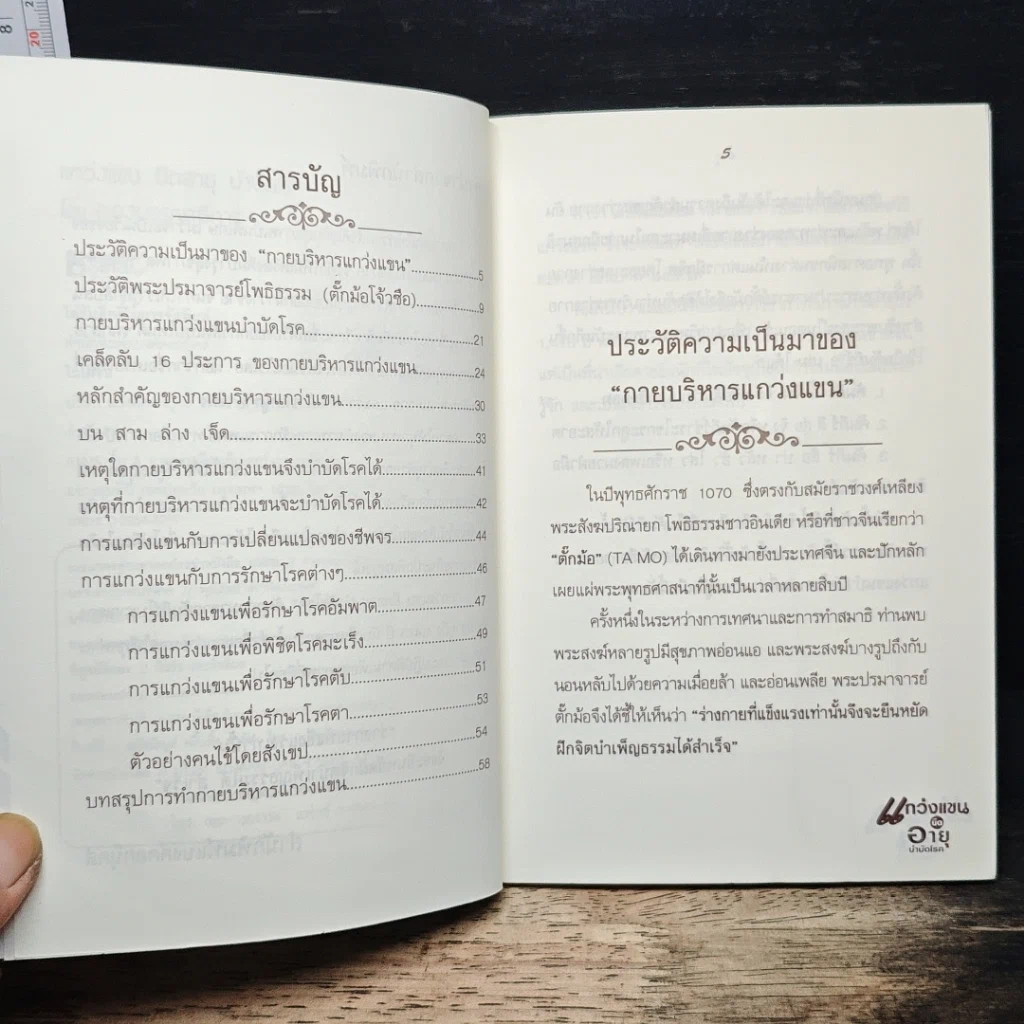 8
20
สารบัญ
ประวัติความเป็นมาของ “กายบริหารแกว่งแขน”..................5
ประวัติพระปรมาจารย์โพธิธรรม (ตั๊กม้อโจ้วซือ)..................9
กายบริหารแกว่งแขนบำบัดโรค..................21
เคล็ดลับ 16 ประการ ของกายบริหารแกว่งแขน..................24
หลักสำคัญของกายบริหารแกว่งแขน..................30
บน สาม ล่าง เจ็ด..................33
เหตุใดกายบริหารแกว่งแขนจึงบำบัดโรคได้..................41
เหตุที่กายบริหารแกว่งแขนจะบำบัดโรคได้..................42
การแกว่งแขนกับการเปลี่ยนแปลงของชีพจร..................44
การแกว่งแขนกับการรักษาโรคต่างๆ..................46
การแกว่งแขนเพื่อรักษาโรคอัมพาต..................47
การแกว่งแขนเพื่อพิชิตโรคมะเร็ง..................49
การแกว่งแขนเพื่อรักษาโรคตับ..................51
การแกว่งแขนเพื่อรักษาโรคตา..................53
ตัวอย่างคนไข้โดยสังเขป..................54
บทสรุปการทำกายบริหารแกว่งแขน..................58
5
ประวัติความเป็นมาของ
“กายบริหารแกว่งแขน”
ในปีพุทธศักราช 1070 ซึ่งตรงกับสมัยราชวงศ์เหลียง
พระสังฆปริณายก โพธิธรรมชาวอินเดีย หรือที่ชาวจีนเรียกว่า
“ตั๊กม้อ” (TA MO) ได้เดินทางมายังประเทศจีน และปักหลัก
เผยแผ่พระพุทธศาสนาที่นั้นเป็นเวลาหลายสิบปี
ครั้งหนึ่งในระหว่างการเทศนาและการทำสมาธิ ท่านพบ
พระสงฆ์หลายรูปมีสุขภาพอ่อนแอ และพระสงฆ์บางรูปถึงกับ
นอนหลับไปด้วยความเมื่อยล้า และอ่อนเพลีย พระปรมาจารย์
ตั๊กม้อจึงได้ชี้ให้เห็นว่า “ร่างกายที่แข็งแรงเท่านั้นจึงจะยืนหยัด
ฝึกจิตบำเพ็ญธรรมได้สำเร็จ”
แกว่งแขน
ยืด
อายุ
บำบัดโรค